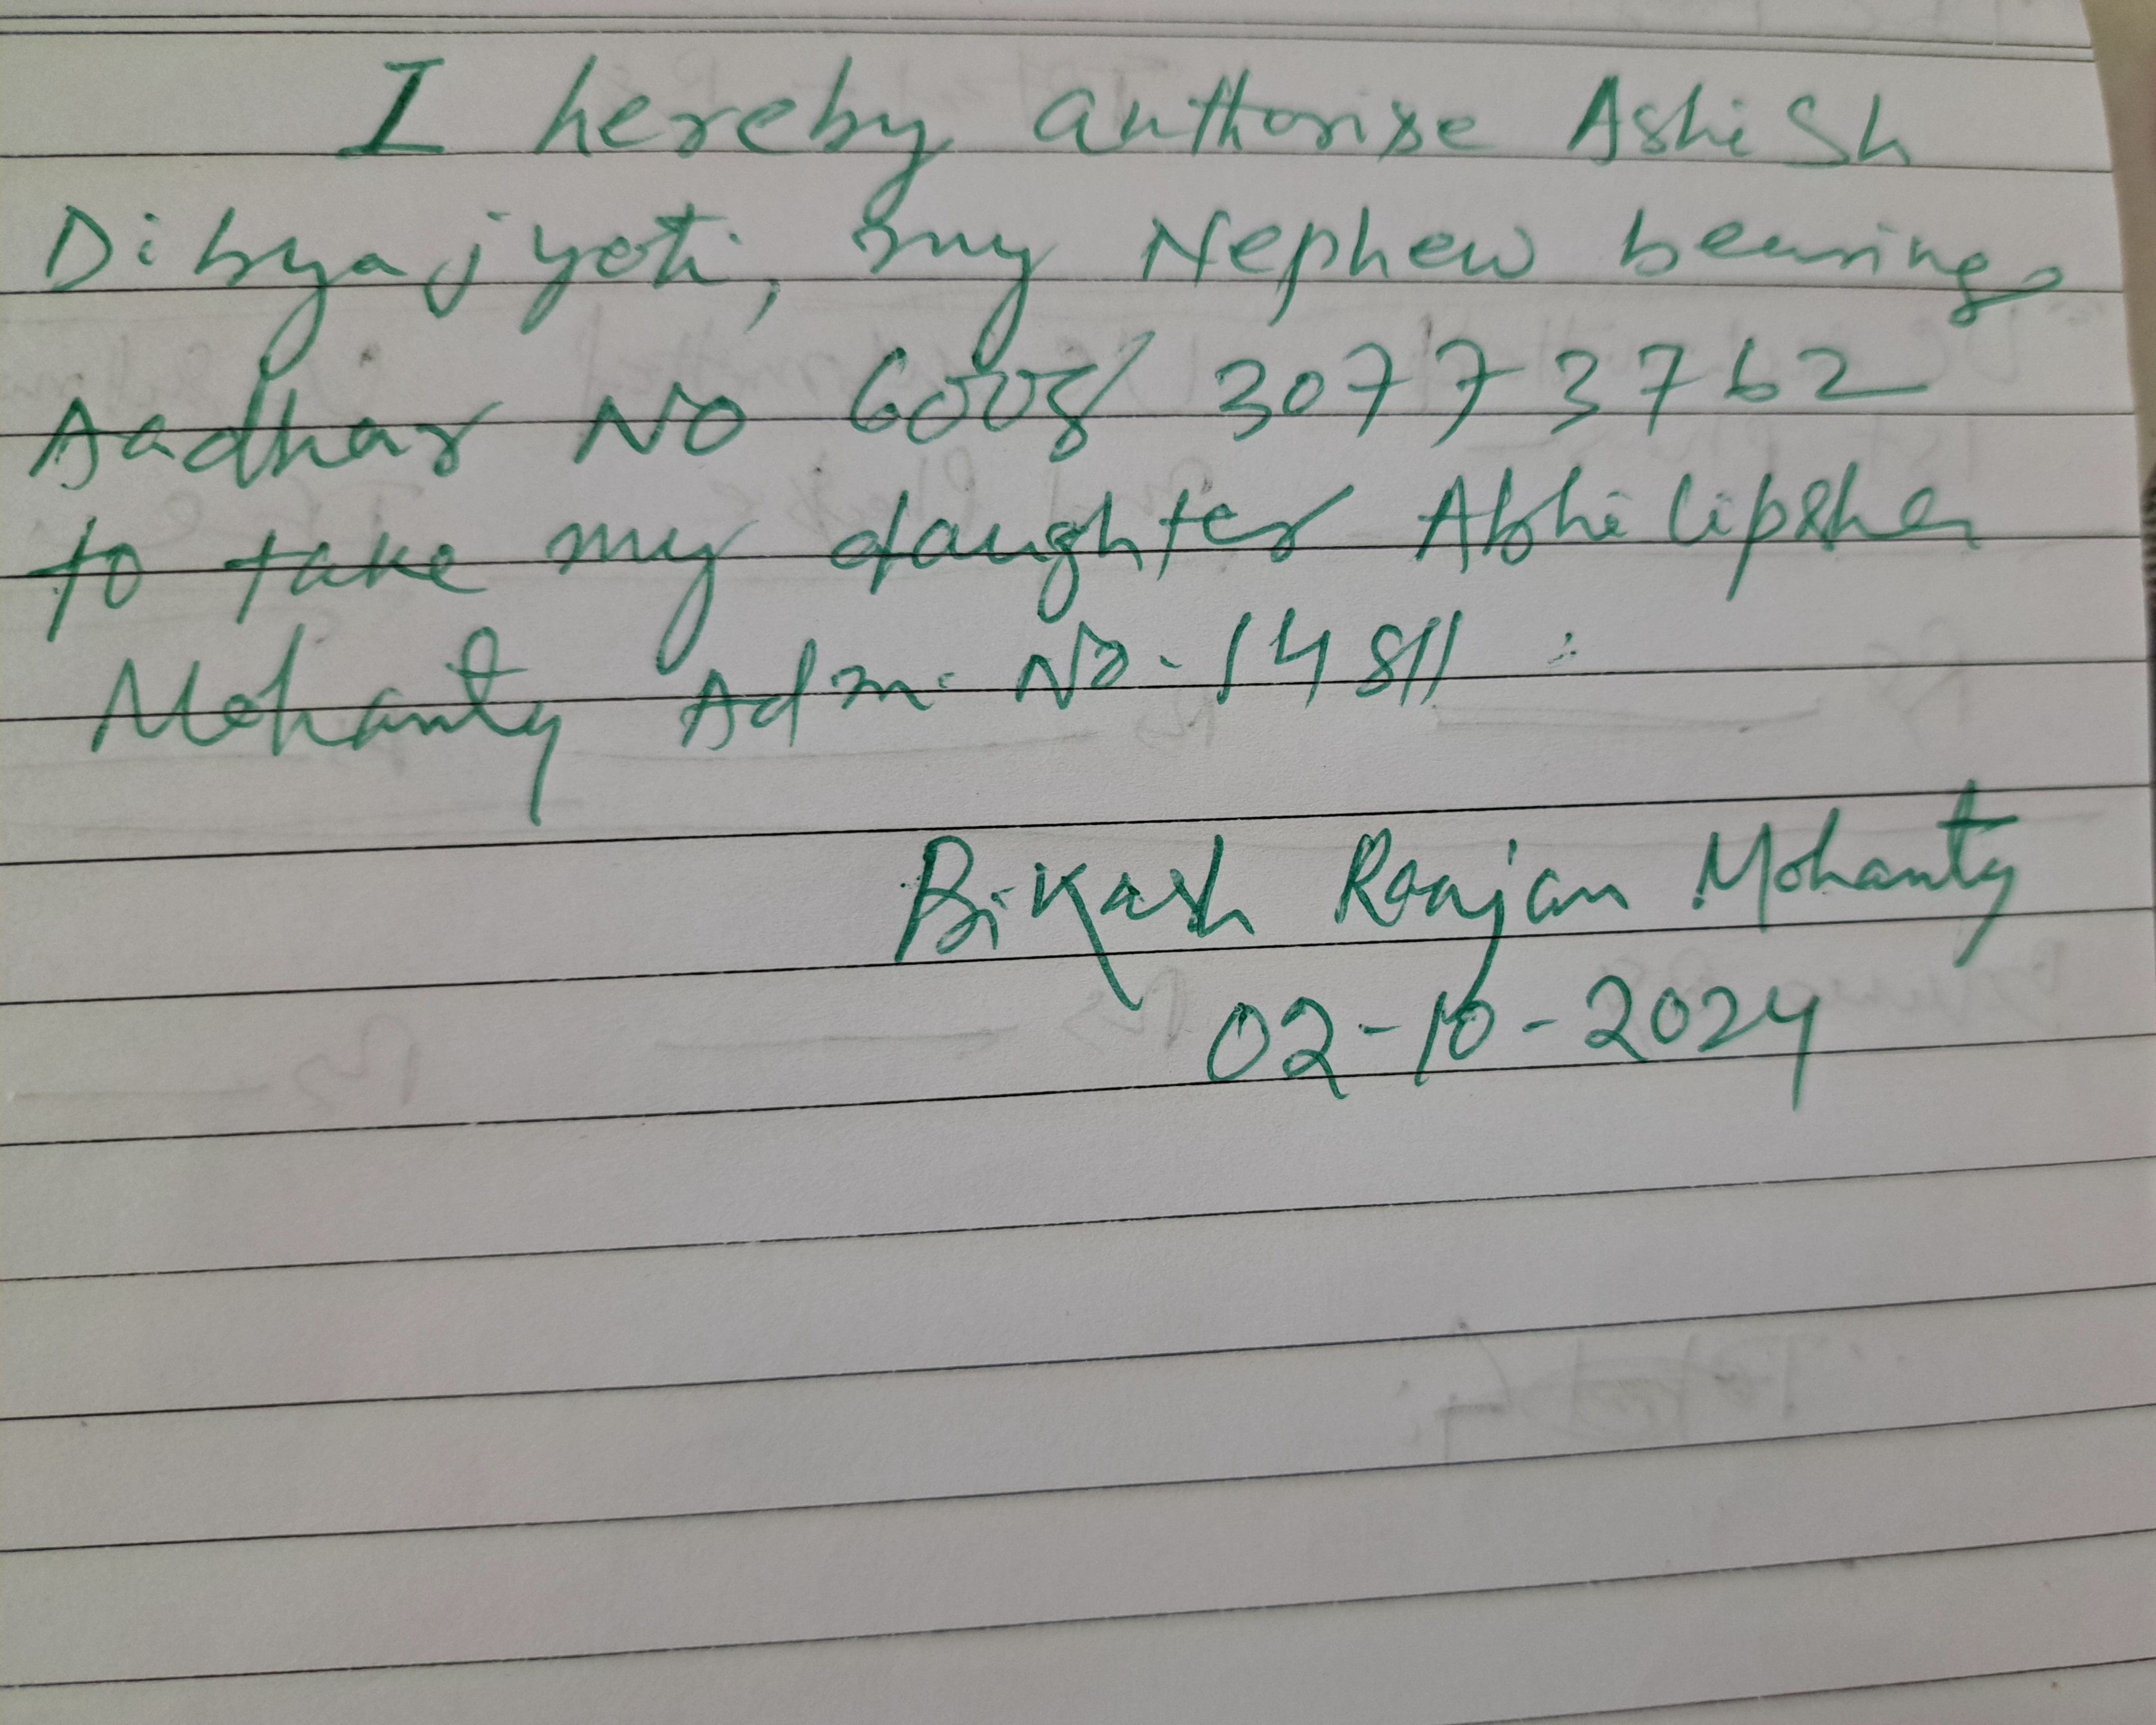 I hereby authorise Ashish
Dibyajyoti, my Nephew bearing
Aadhar NO 6008 30773762
to take my daughter Abhilipsha
Mohanty Adm. No. 14811
Bikash Ranjan Mohanty
02-10-2024